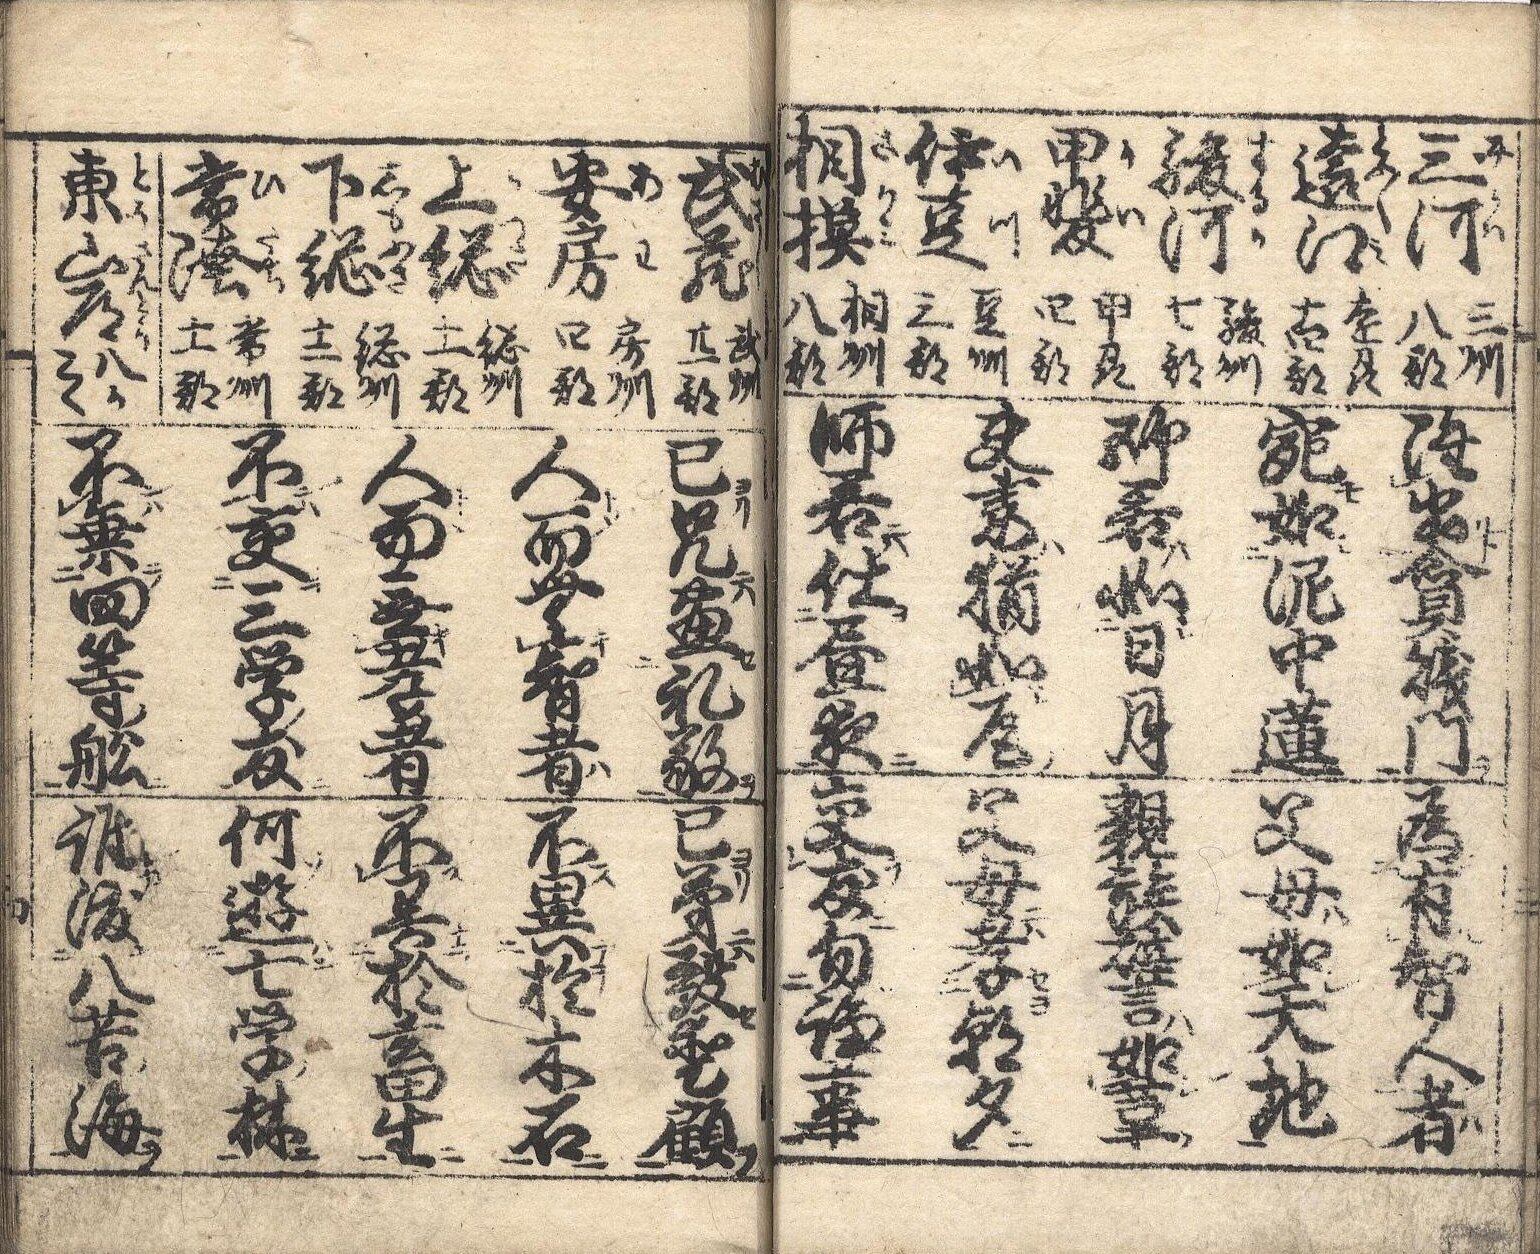 三河 みかは 三州 八郡
遠江 とを〳〵たふみ 遠州 十四郡
駿河 するか 駿州 七郡
甲斐 かい 甲州 四郡
伊豆 いつ 豆州 三郡
相摸 さかみ 相州 八郡
雖出貧賤門 為有智人者
宛如泥中蓮 父母如天地
師君如日月 親族譬如葦
夫妻猶如瓦 父母孝朝夕
師君仕昼夜 交友勿諍事
武蔵 むさし 武州 廿一郡
安房 あわ 房州 四郡
上総 総州 十一郡
下総 しもつけさ 総州 十二郡
常陸 ひたち 常州 十一郡
東山道八ケ
己兄盡礼敬 己弟致愛顧
人而無智者 不異於木石
人而無孝者 不異於畜生
不交三学友 何遊七学林
不乗四等船 誰渡八苦海